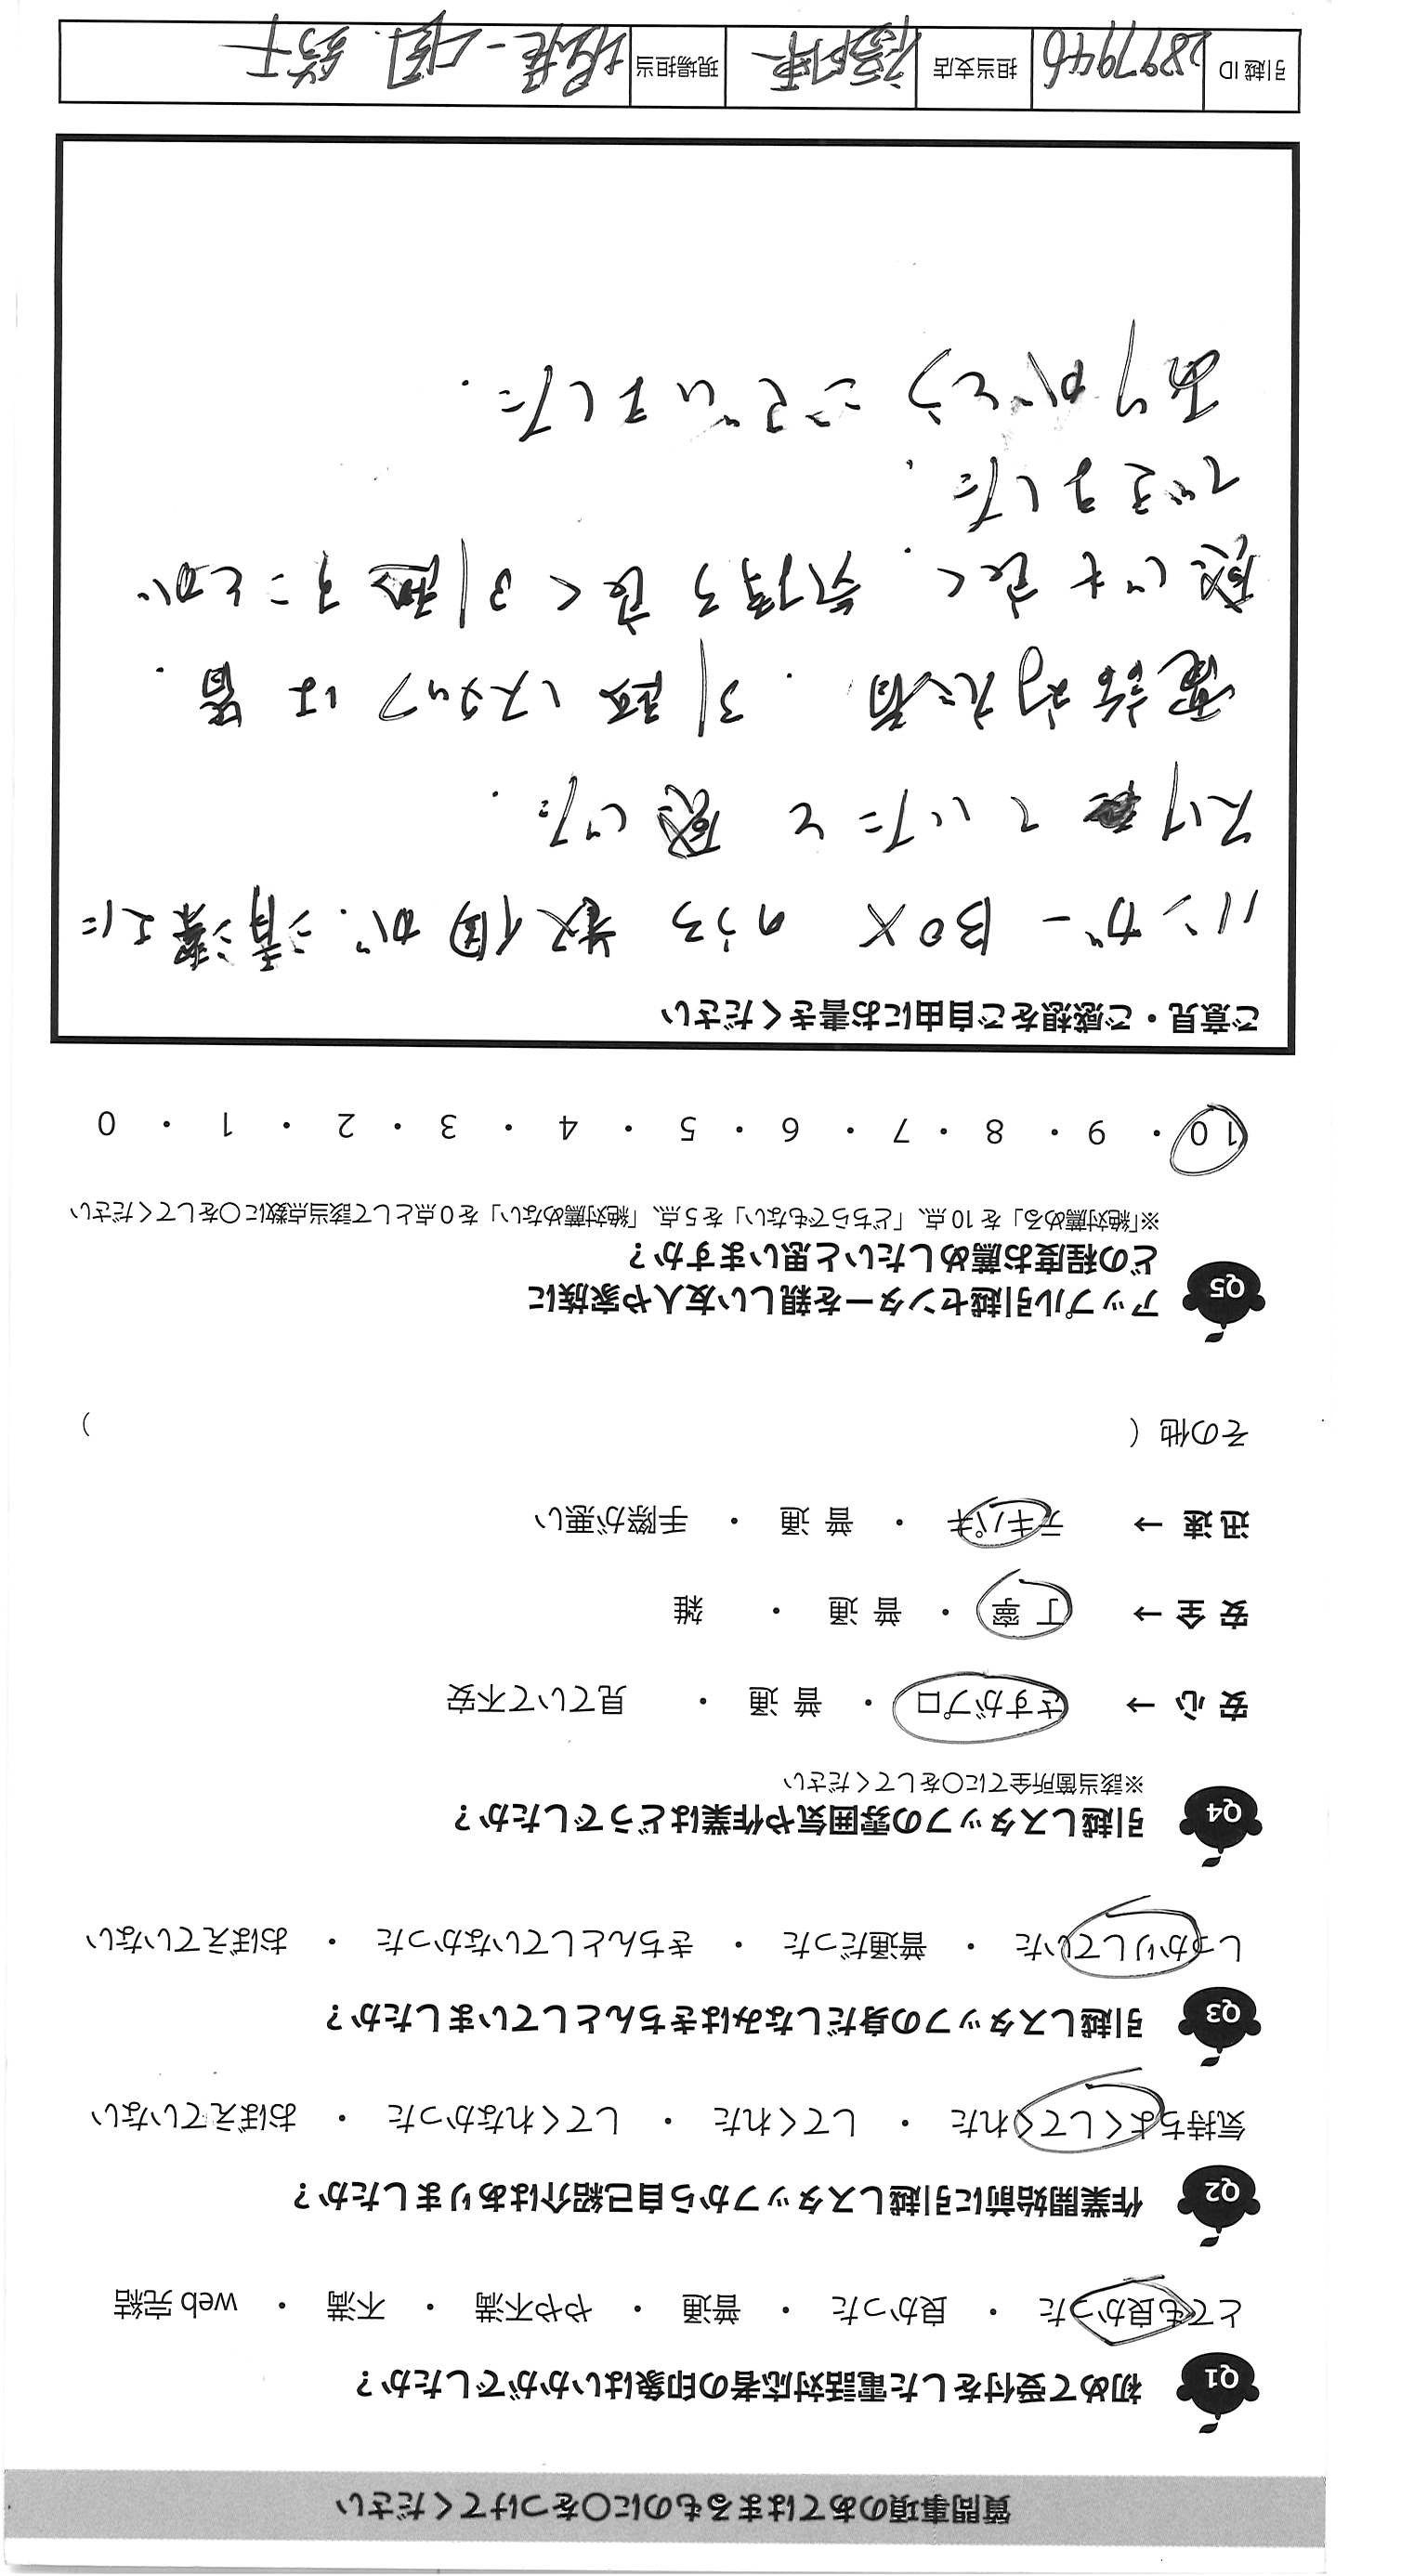 質問事項のあてはまるものに○をつけてください
Q1 初めて受付をした電話対応者の印象はいかがでしたか？
とても良かった ・ 良かった ・ 普通 ・ やや不満 ・ 不満 ・ web 完結
Q2 作業開始前に引越しスタッフから自己紹介はありましたか？
気持ちよくしてくれた ・ してくれた ・ してくれなかった ・ おぼえていない
Q3 引越しスタッフの身だしなみはきちんとしていましたか？
しっかりしていた ・ 普通だった ・ きちんとしていなかった ・ おぼえていない
Q4 引越しスタッフの雰囲気や作業はどうでしたか？
※該当箇所全てに○をしてください
安 心 → さすがプロ ・ 普 通 ・ 見ていて不安
安 全 → 丁 寧 ・ 普 通 ・ 雑
迅 速 → テキパキ ・ 普 通 ・ 手際が悪い
その他（ ）
Q5 アップル引越センターを親しい友人や家族に
どの程度お薦めしたいと思いますか？
※「絶対薦める」を 10 点、「どちらでもない」を 5 点、「絶対薦めない」を 0 点として該当点数に○をしてください
10 ・ 9 ・ 8 ・ 7 ・ 6 ・ 5 ・ 4 ・ 3 ・ 2 ・ 1 ・ 0
ご意見・ご感想をご自由にお書きください
ハンガーBOX のうち 数個が、清潔上に
ていたと 感じた.
電話対応者、引越しスタッフは 皆、
感じも良く、気持ち良く引越すことが
できました.
ありがとうございました.
引越 ID 2897946 担当支店 現場担当